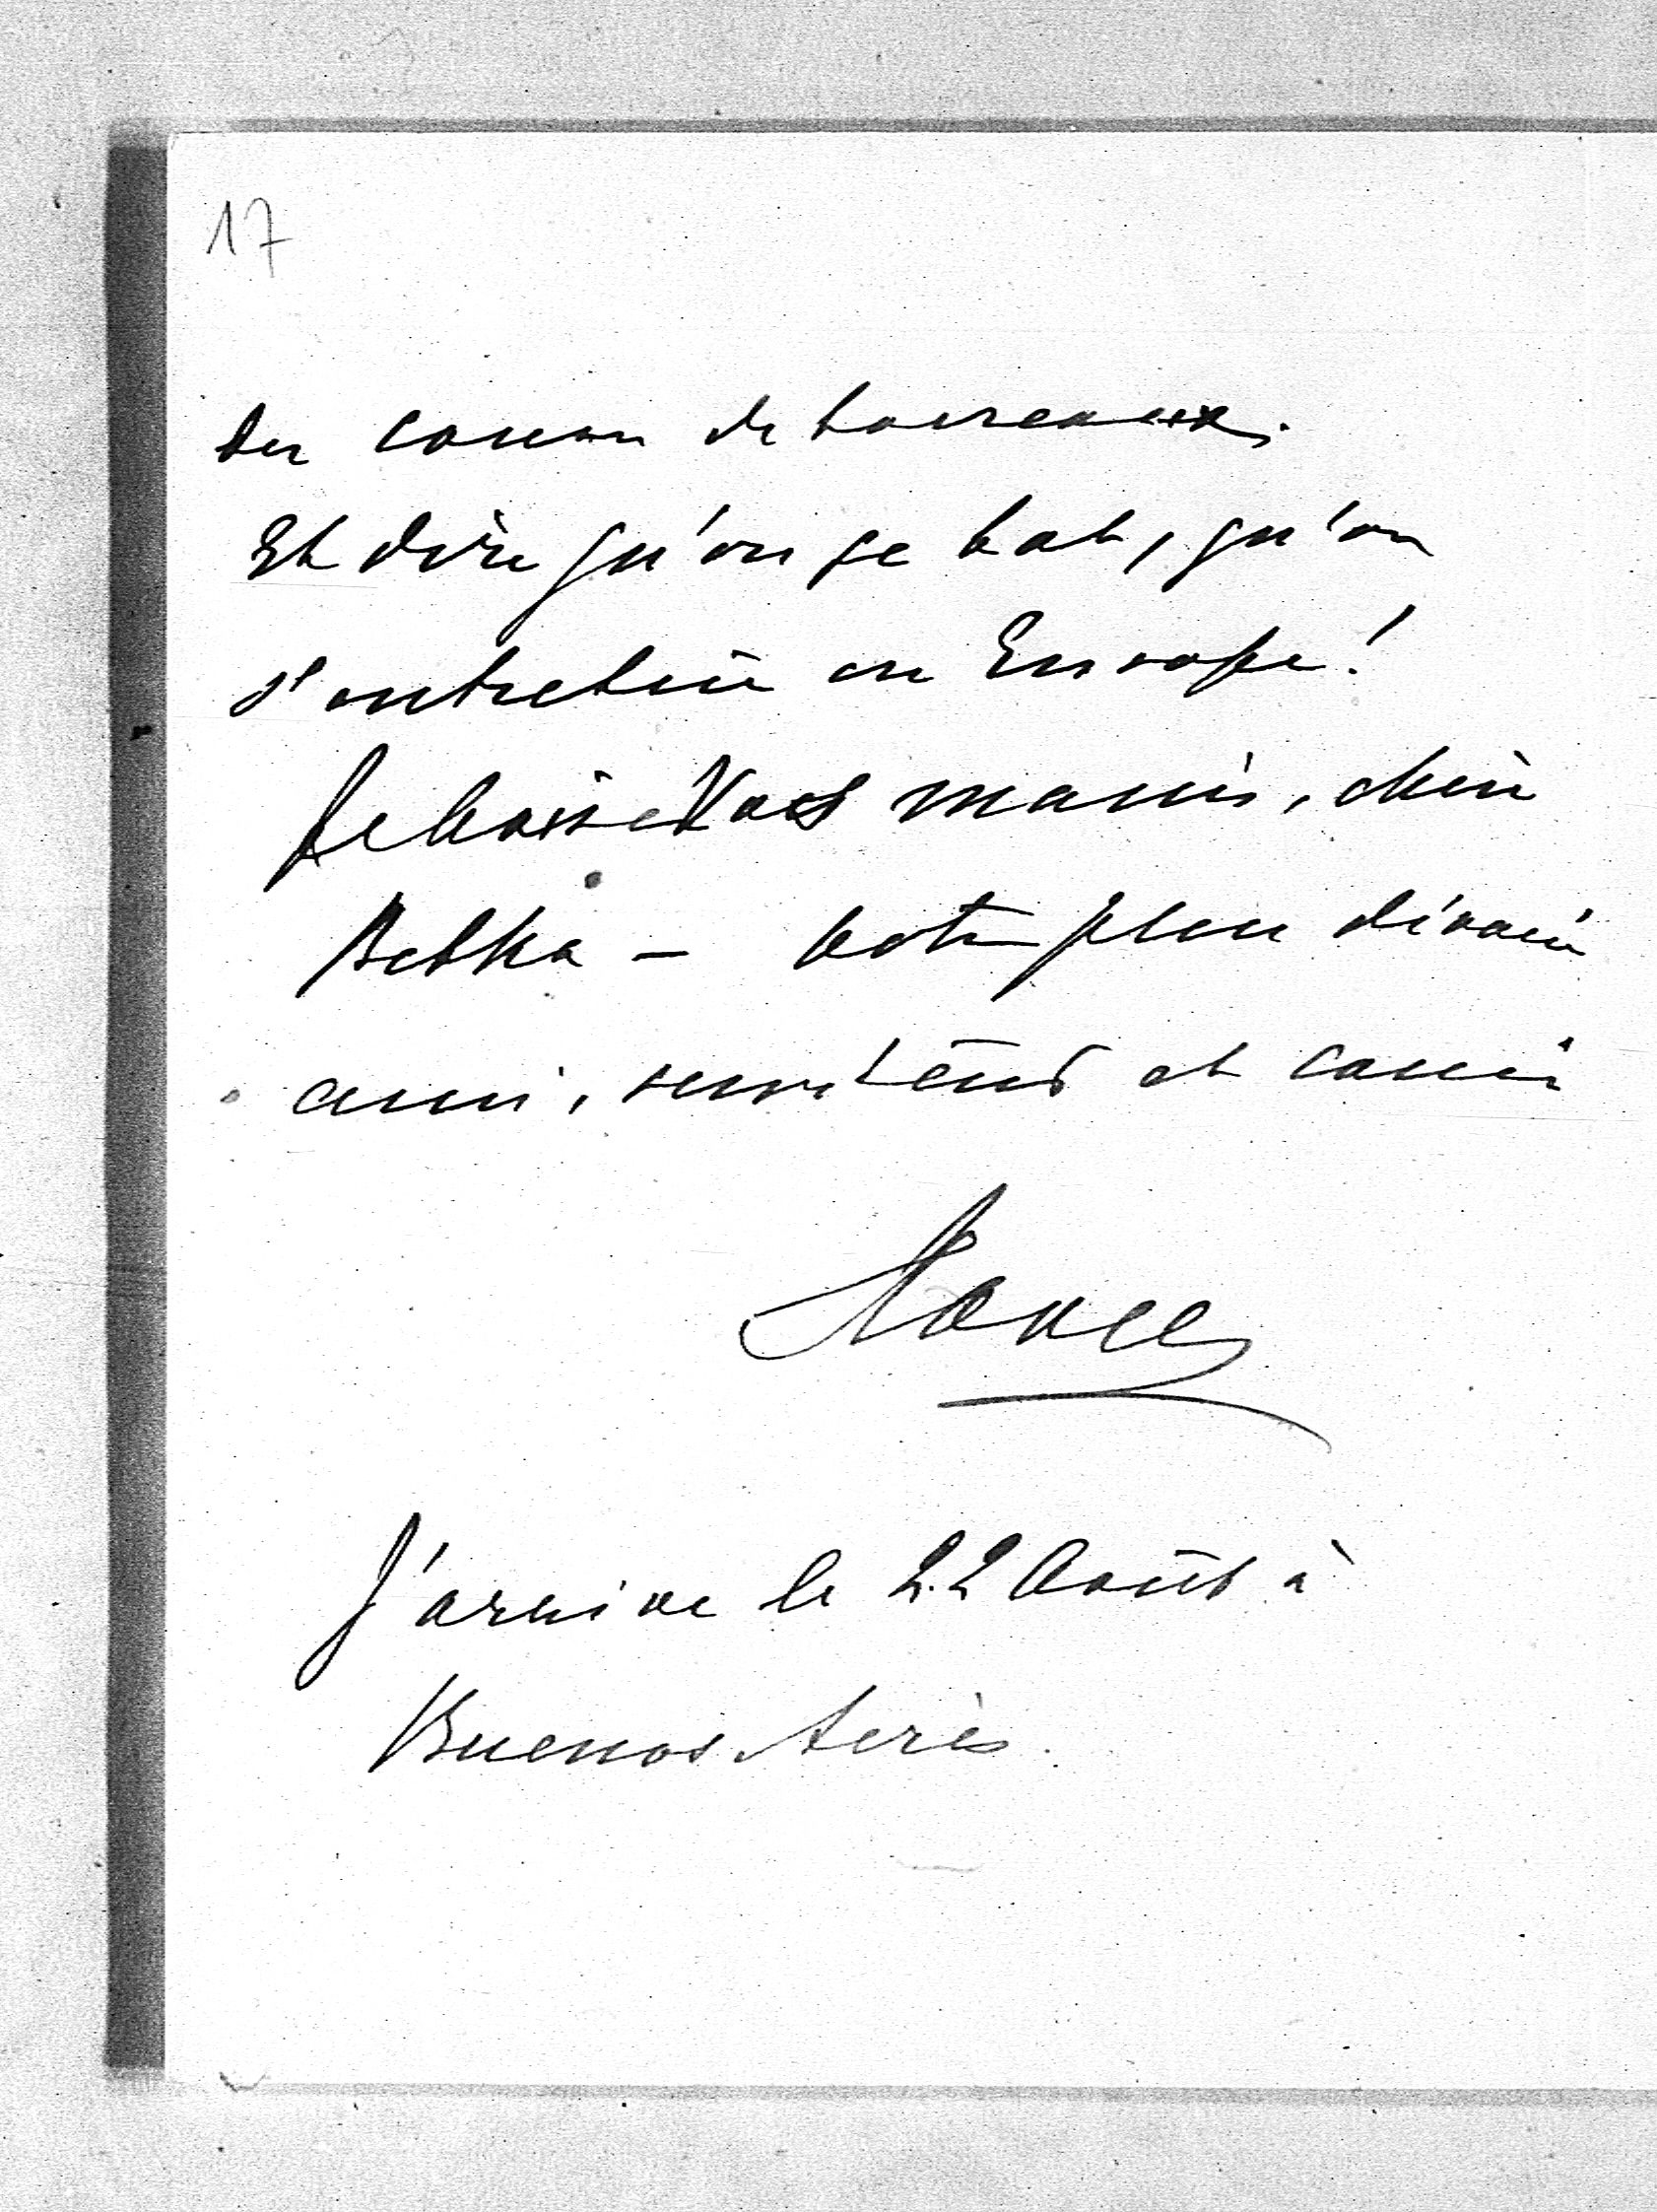 17
des courses de taureaux.
Et dire qu'on se bat, qu'on
s'entretue en Europe!
Je baise Vos mains, chère
Betka – votre plus dévoué
ami, serviteur et cousin
J'arrive le 22 Août à
Buenos Aeres.